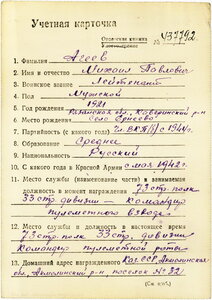 Учетная карточка
Орденская книжка
Удостоверение
№ 437792
1. Фамилия Агеев
2. Имя и отчество Михаил Павлович
3. Воинское звание Лейтенант
4. Пол Мужской
5. Год рождения 1921
6. Место рождения Рязанская обл., Каверинский р-н
село Ернеево
7. Партийность (с какого года) Чл. ВКП(б) с 1944г.
8. Образование Среднее
9. Национальность Русский
10. С какого года в Красной Армии с мая 1942 г.
11. Место службы (наименование части) и занимаемая
должность в момент награждения 73 стр. полк
33 стр. дивизии — командир
пулеметного взвода
12. Место службы и должность в настоящее время
73 стр. полк 33 стр. дивизии
Командир пулеметной роты
13. Домашний адрес награжденного Каз. ССР Акмолинская
обл., Акмолинский р-н, поселок № 32
(См. на об.)